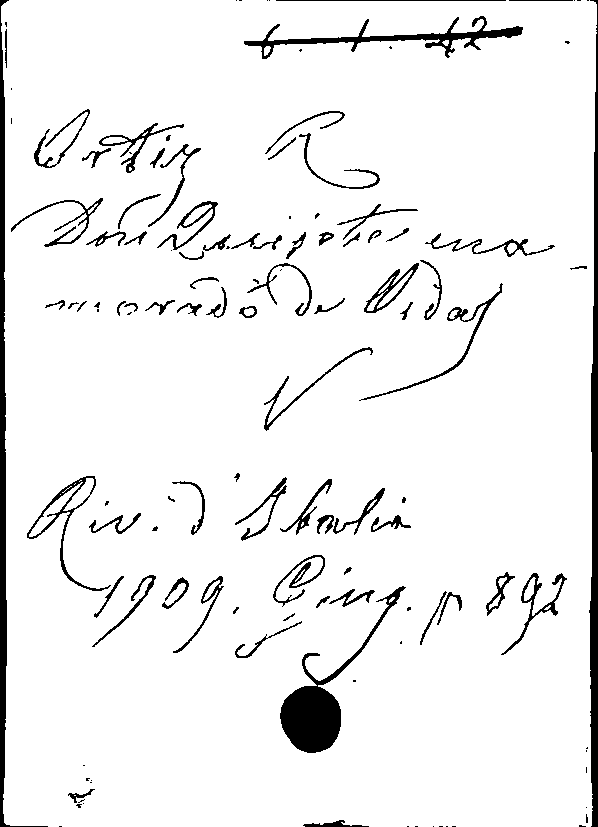 6. 1. 42
Ortiz R
Don Quijote ena
morado de Vidas
V
Riv. d'Italia
1909. Giug. p 892